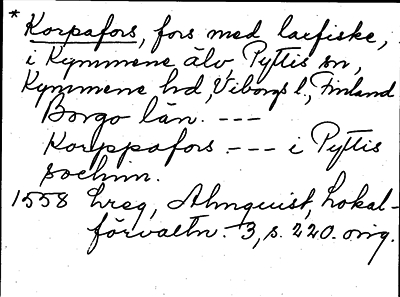 * Korpafors, fors med laxfiske,
i Kymmene älv, Pyttis sn,
Kymmene hd, Viborgs l., Finland
Borgo län. ---
Korppafors --- i Pyttis
sochnn.
1558 Lreg, Almquist, Lokal-
förvaltn. 3, s. 220. orig.